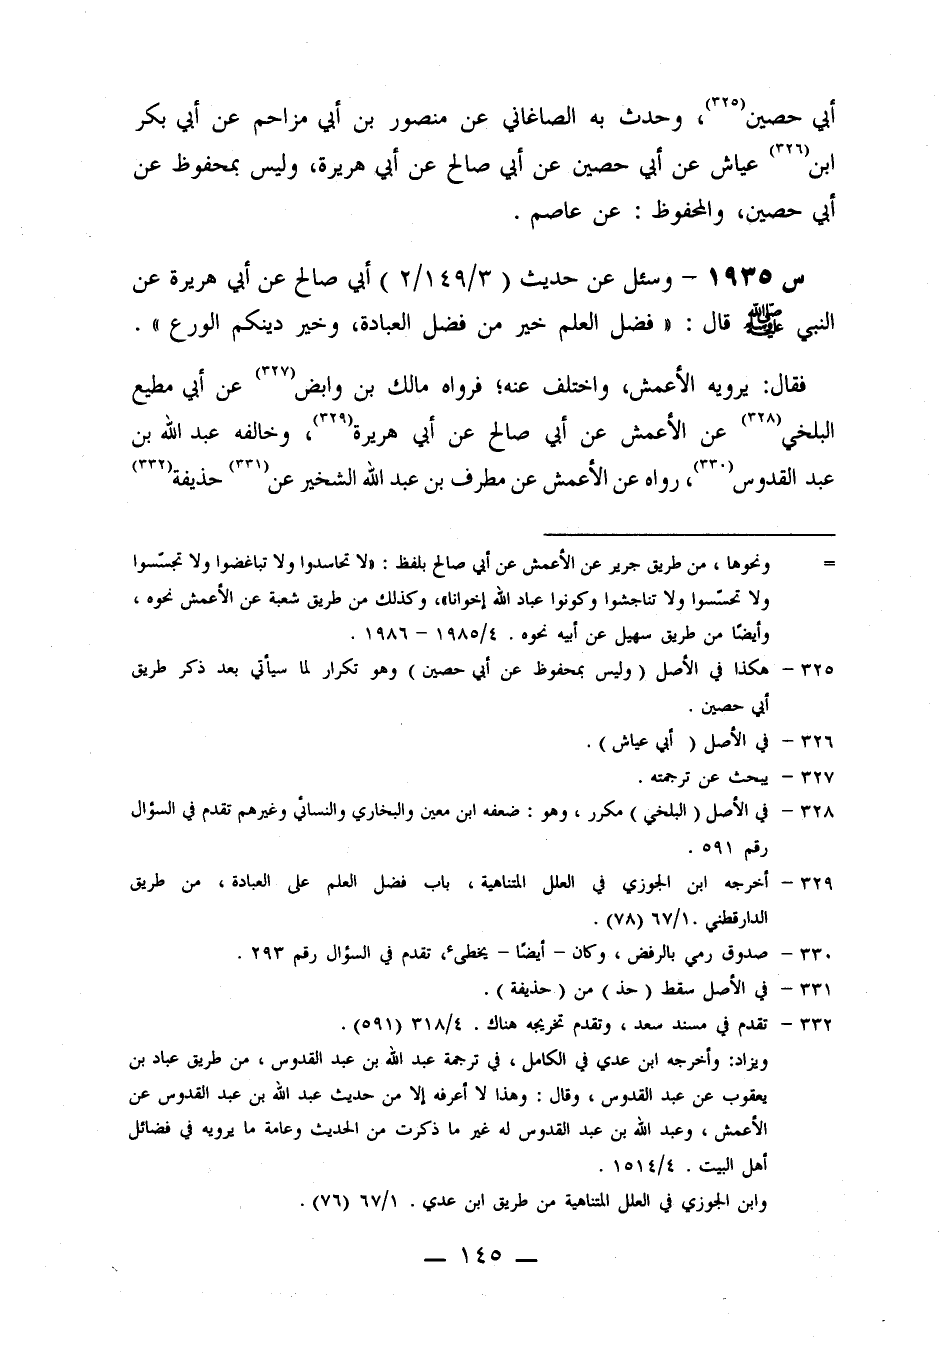 أبي حصين(٣٢٥)، وحدث به الصاغاني عن منصور بن أبي مزاحم عن أبي بكر
ابن(٣٢٦) عياش عن أبي حصين عن أبي صالح عن أبي هريرة، وليس بمحفوظ عن
أبي حصين، والمحفوظ : عن عاصم .
س ١٩٣٥ – وسئل عن حديث ( ٢/١٤٩/٣ ) أبي صالح عن أبي هريرة عن
النبي ﷺ قال : « فضل العلم خير من فضل العبادة، وخير دينكم الورع » .
فقال: يرويه الأعمش، واختلف عنه؛ فرواه مالك بن وابض(٣٢٧) عن أبي مطيع
البلخي(٣٢٨) عن الأعمش عن أبي صالح عن أبي هريرة(٣٢٩)، وخالفه عبد الله بن
عبد القدوس(٣٣٠)، رواه عن الأعمش عن مطرف بن عبد الله الشخير عن(٣٣١) حذيفة(٣٣٢)
= ونحوها ، من طريق جرير عن الأعمش عن أبي صالح بلفظ : «لا تحاسدوا ولا تباغضوا ولا تجسّسوا
ولا تحسّسوا ولا تناجشوا وكونوا عباد الله إخوانا»، وكذلك من طريق شعبة عن الأعمش نحوه ،
وأيضًا من طريق سهيل عن أبيه نحوه . ١٩٨٥/٤ – ١٩٨٦ .
٣٢٥ – هكذا في الأصل ( وليس بمحفوظ عن أبي حصين ) وهو تكرار لما سيأتي بعد ذكر طريق
أبي حصين .
٣٢٦ – في الأصل ( أبي عياش ) .
٣٢٧ – يبحث عن ترجمته .
٣٢٨ – في الأصل ( البلخي ) مكرر ، وهو : ضعفه ابن معين والبخاري والنسائي وغيرهم تقدم في السؤال
رقم ٥٩١ .
٣٢٩ – أخرجه ابن الجوزي في العلل المتناهية ، باب فضل العلم على العبادة ، من طريق
الدارقطني ٦٧/١٠ (٧٨) .
٣٣٠ – صدوق رمي بالرفض ، وكان – أيضًا – يخطىء، تقدم في السؤال رقم ٢٩٣ .
٣٣١ – في الأصل سقط ( حذ ) من ( حذيفة ) .
٣٣٢ – تقدم في مسند سعد ، وتقدم تخريجه هناك . ٣١٨/٤ (٥٩١) .
ويزاد: وأخرجه ابن عدي في الكامل ، في ترجمة عبد الله بن عبد القدوس ، من طريق عباد بن
يعقوب عن عبد القدوس ، وقال : وهذا لا أعرفه إلا من حديث عبد الله بن عبد القدوس عن
الأعمش ، وعبد الله بن عبد القدوس له غير ما ذكرت من الحديث وعامة ما يرويه في فضائل
أهل البيت . ١٥١٤/٤ .
وابن الجوزي في العلل المتناهية من طريق ابن عدي . ٦٧/١ (٧٦) .
— ١٤٥ —